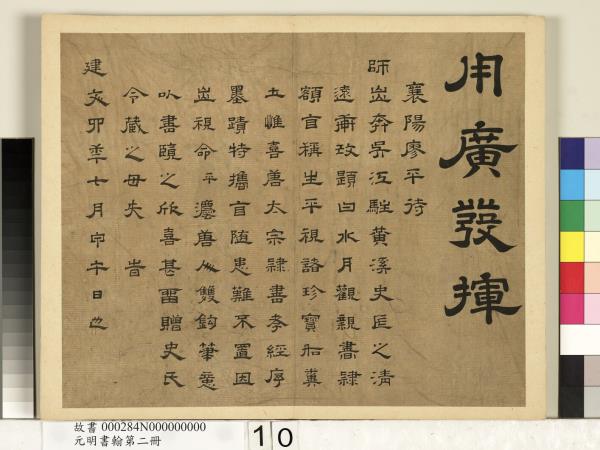 用廣發揮
襄陽廖平待
師出奔吳江駐黃溪史氏之清
遠軒改題曰水月觀親書隸
額自稱生平視諸珍寶如糞
土惟喜唐太宗隸書孝經序
墨蹟特攜自隨患難不置因
出視命平唐人雙鉤筆意
以書之欣喜甚留贈史氏
令藏之毋失 旹
建文卯年七月午日也
故書 000284N000000000
元明書翰第二冊
10